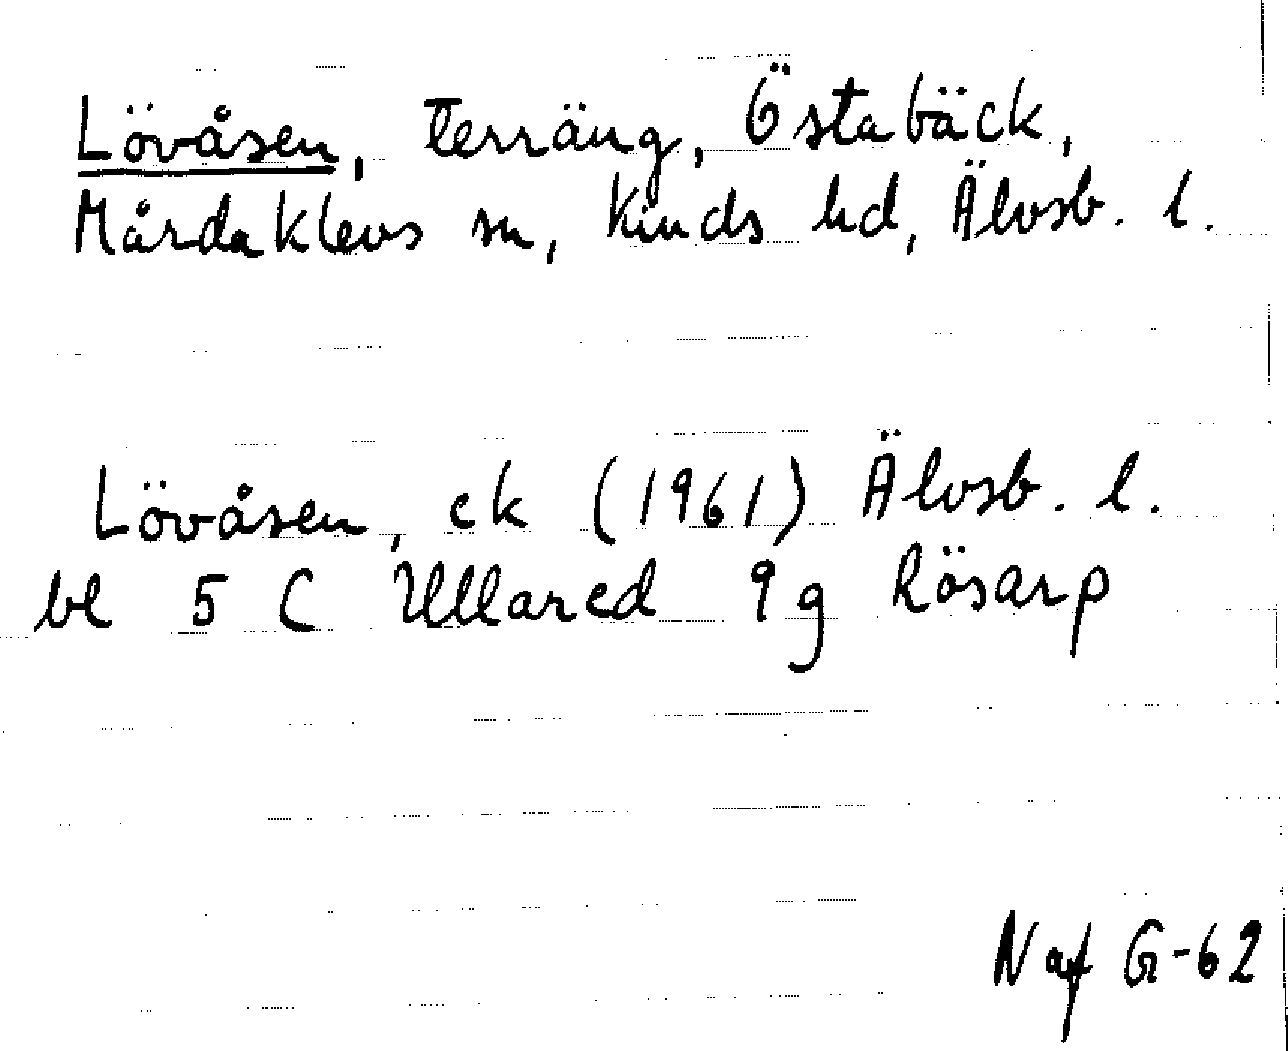 Lövåsen, Terräng, Östabäck,
Mårdaklevs sn, Kinds hd, Älvsb. l.
Lövåsen, ek (1961) Älvsb. l.
bl 5 C Ullared 9g Rösarp
Naf G-62